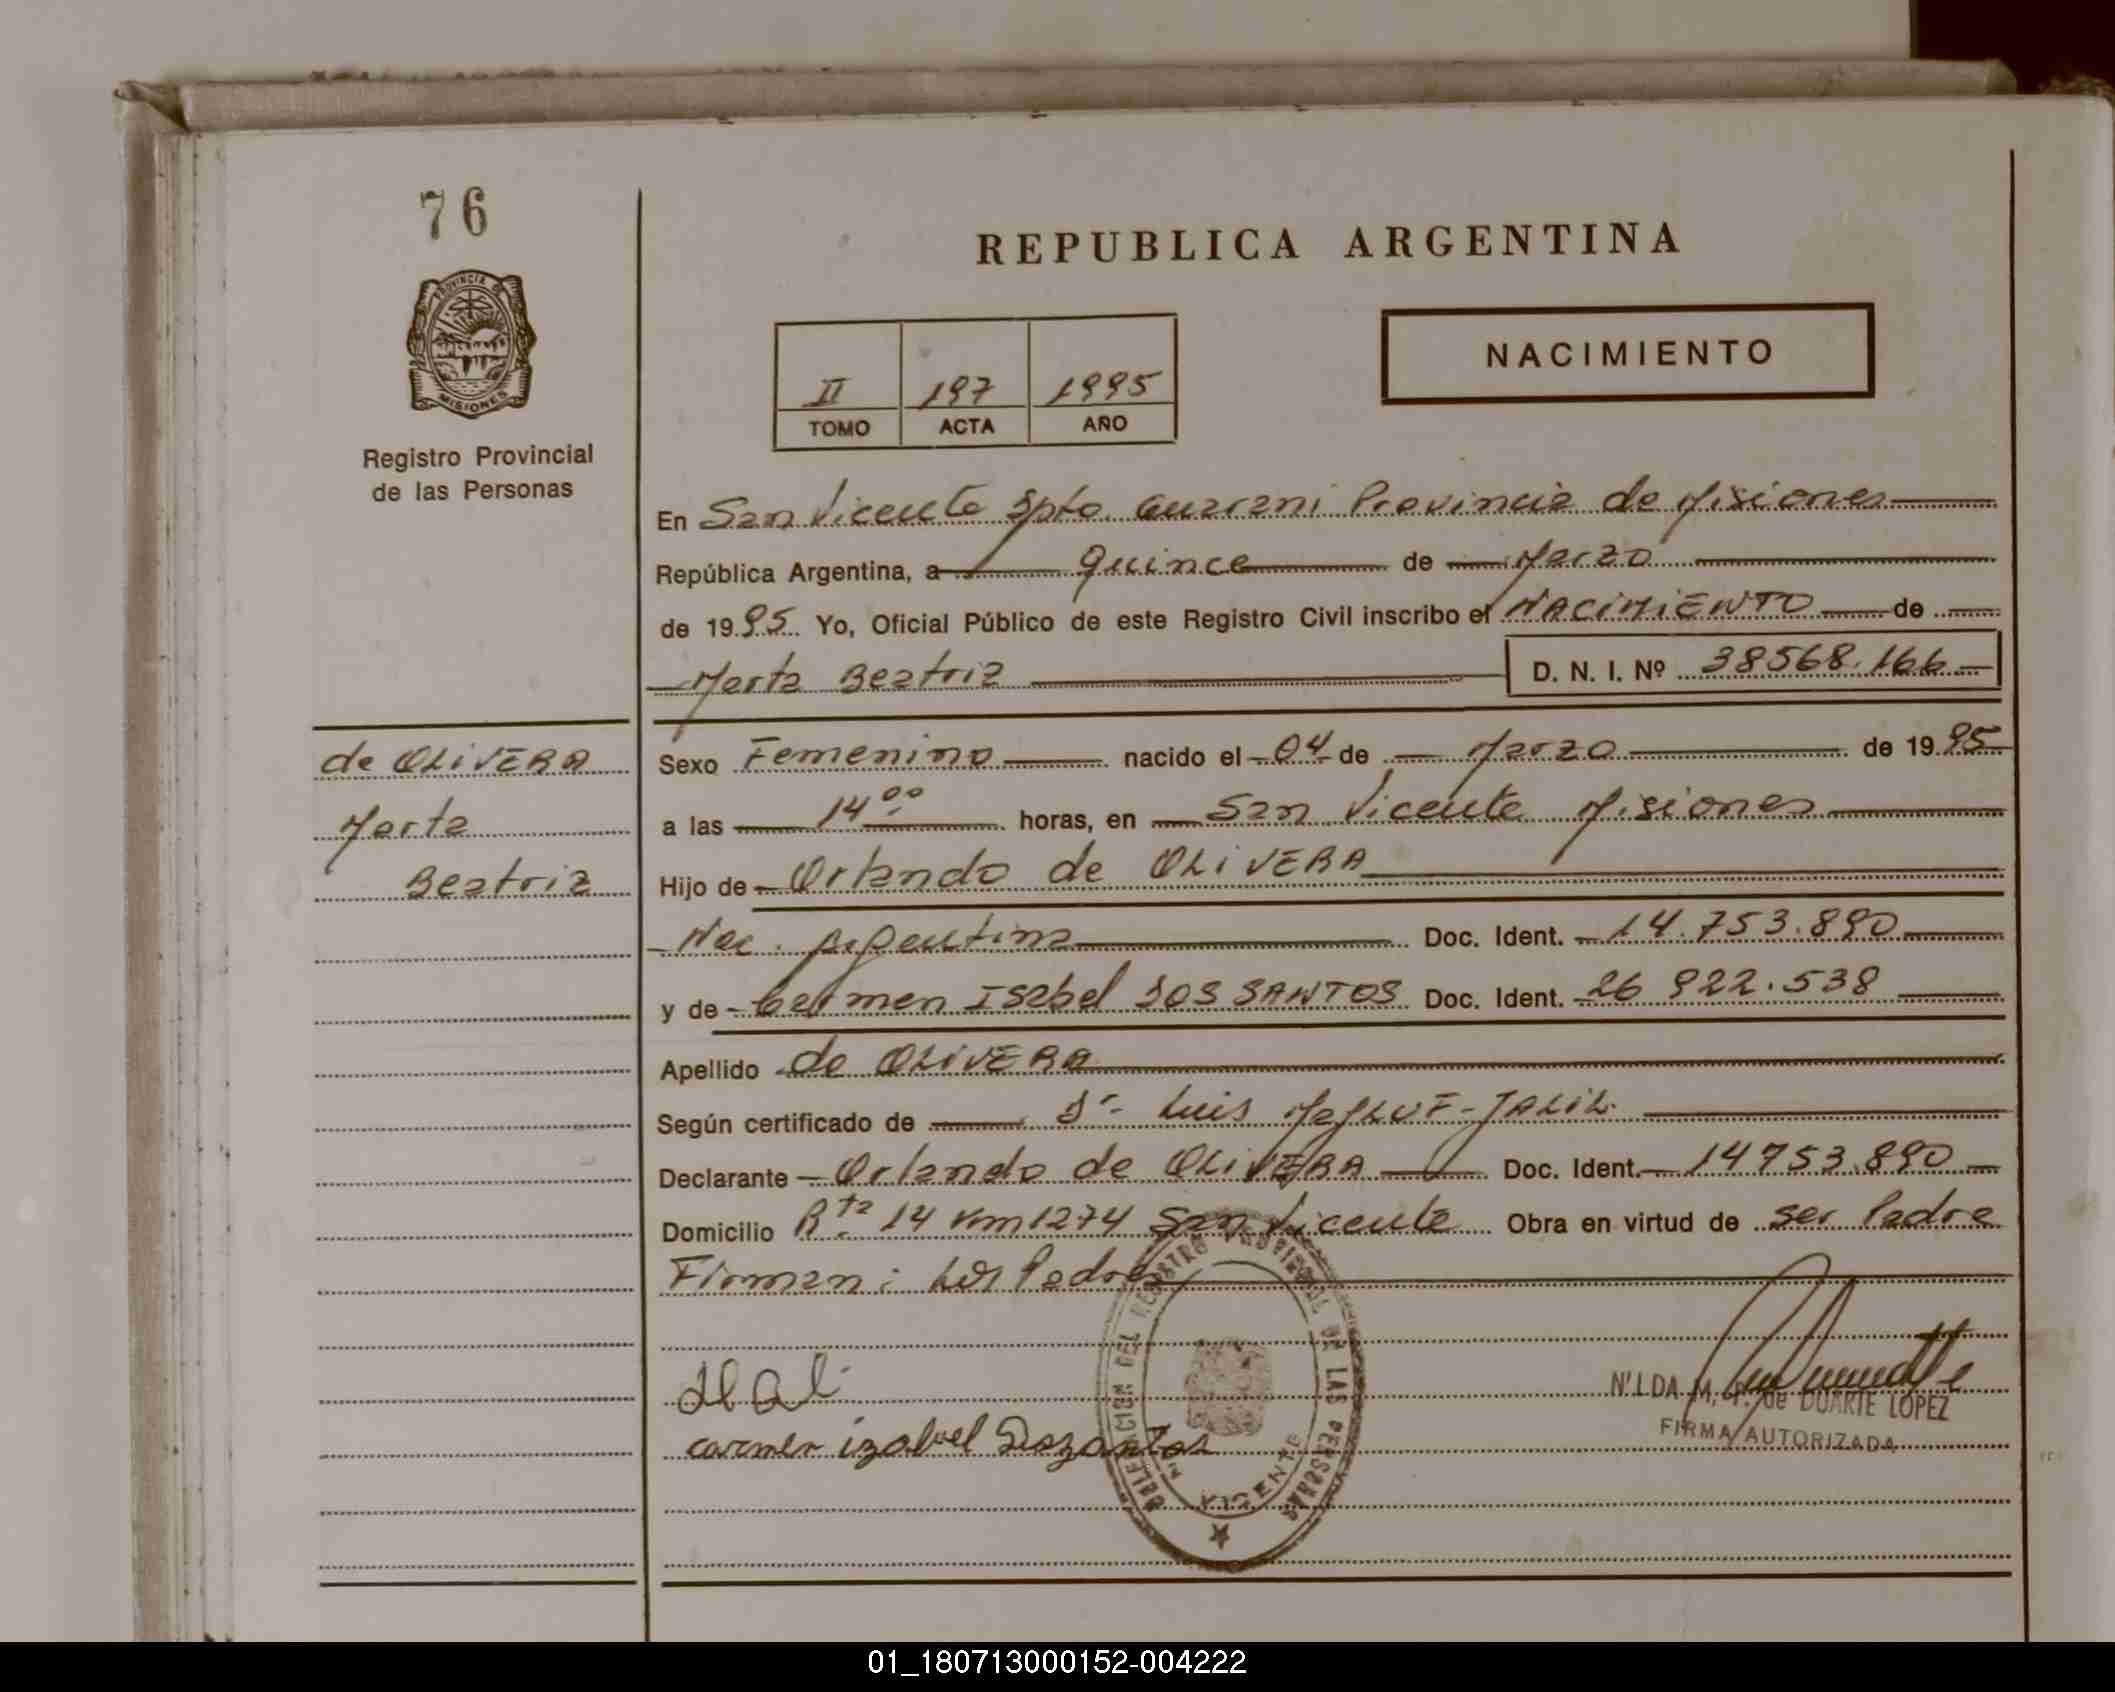 76
PROVINCIA DE
MISIONES
Registro Provincial
de las Personas
REPUBLICA ARGENTINA
II 197 1995
TOMO ACTA AÑO
NACIMIENTO
En San Vicente Dpto. Guarani Provincia de Misiones
República Argentina, a Quince de Marzo
de 1995 Yo, Oficial Público de este Registro Civil inscribo el NACIMIENTO de
Marta Beatriz D. N. I. Nº 38568.166
de OLIVERA
Marta
Beatriz
Sexo Femenino nacido el 04 de Marzo de 1995
a las 14°° horas, en San Vicente Misiones
Hijo de Orlando de OLIVERA
Nac. Argentina Doc. Ident. 14.753.890
y de Carmen Isabel DOS SANTOS Doc. Ident. 26 922.538
Apellido de OLIVERA
Según certificado de Dr. Luis MALUF-JALIL
Declarante Orlando de OLIVERA Doc. Ident. 14753.890
Domicilio Rta 14 Km 1274 San Vicente Obra en virtud de ser Padre
Firman: Los Padres
carmen izabel Dosantos
DELEGACION DEL REGISTRO PROVINCIAL DE LAS PERSONAS
VICENTE
DUARTE LOPEZ
FIRMA AUTORIZADA
01_180713000152-004222